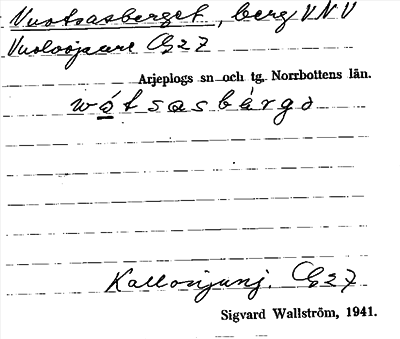 Vuotsasberget, berg VNV
Vuolojaure Cg27
Arjeplogs sn och tg. Norrbottens län.
wåtsasbárgo
Kallonjunj. Cg27
Sigvard Wallström, 1941.